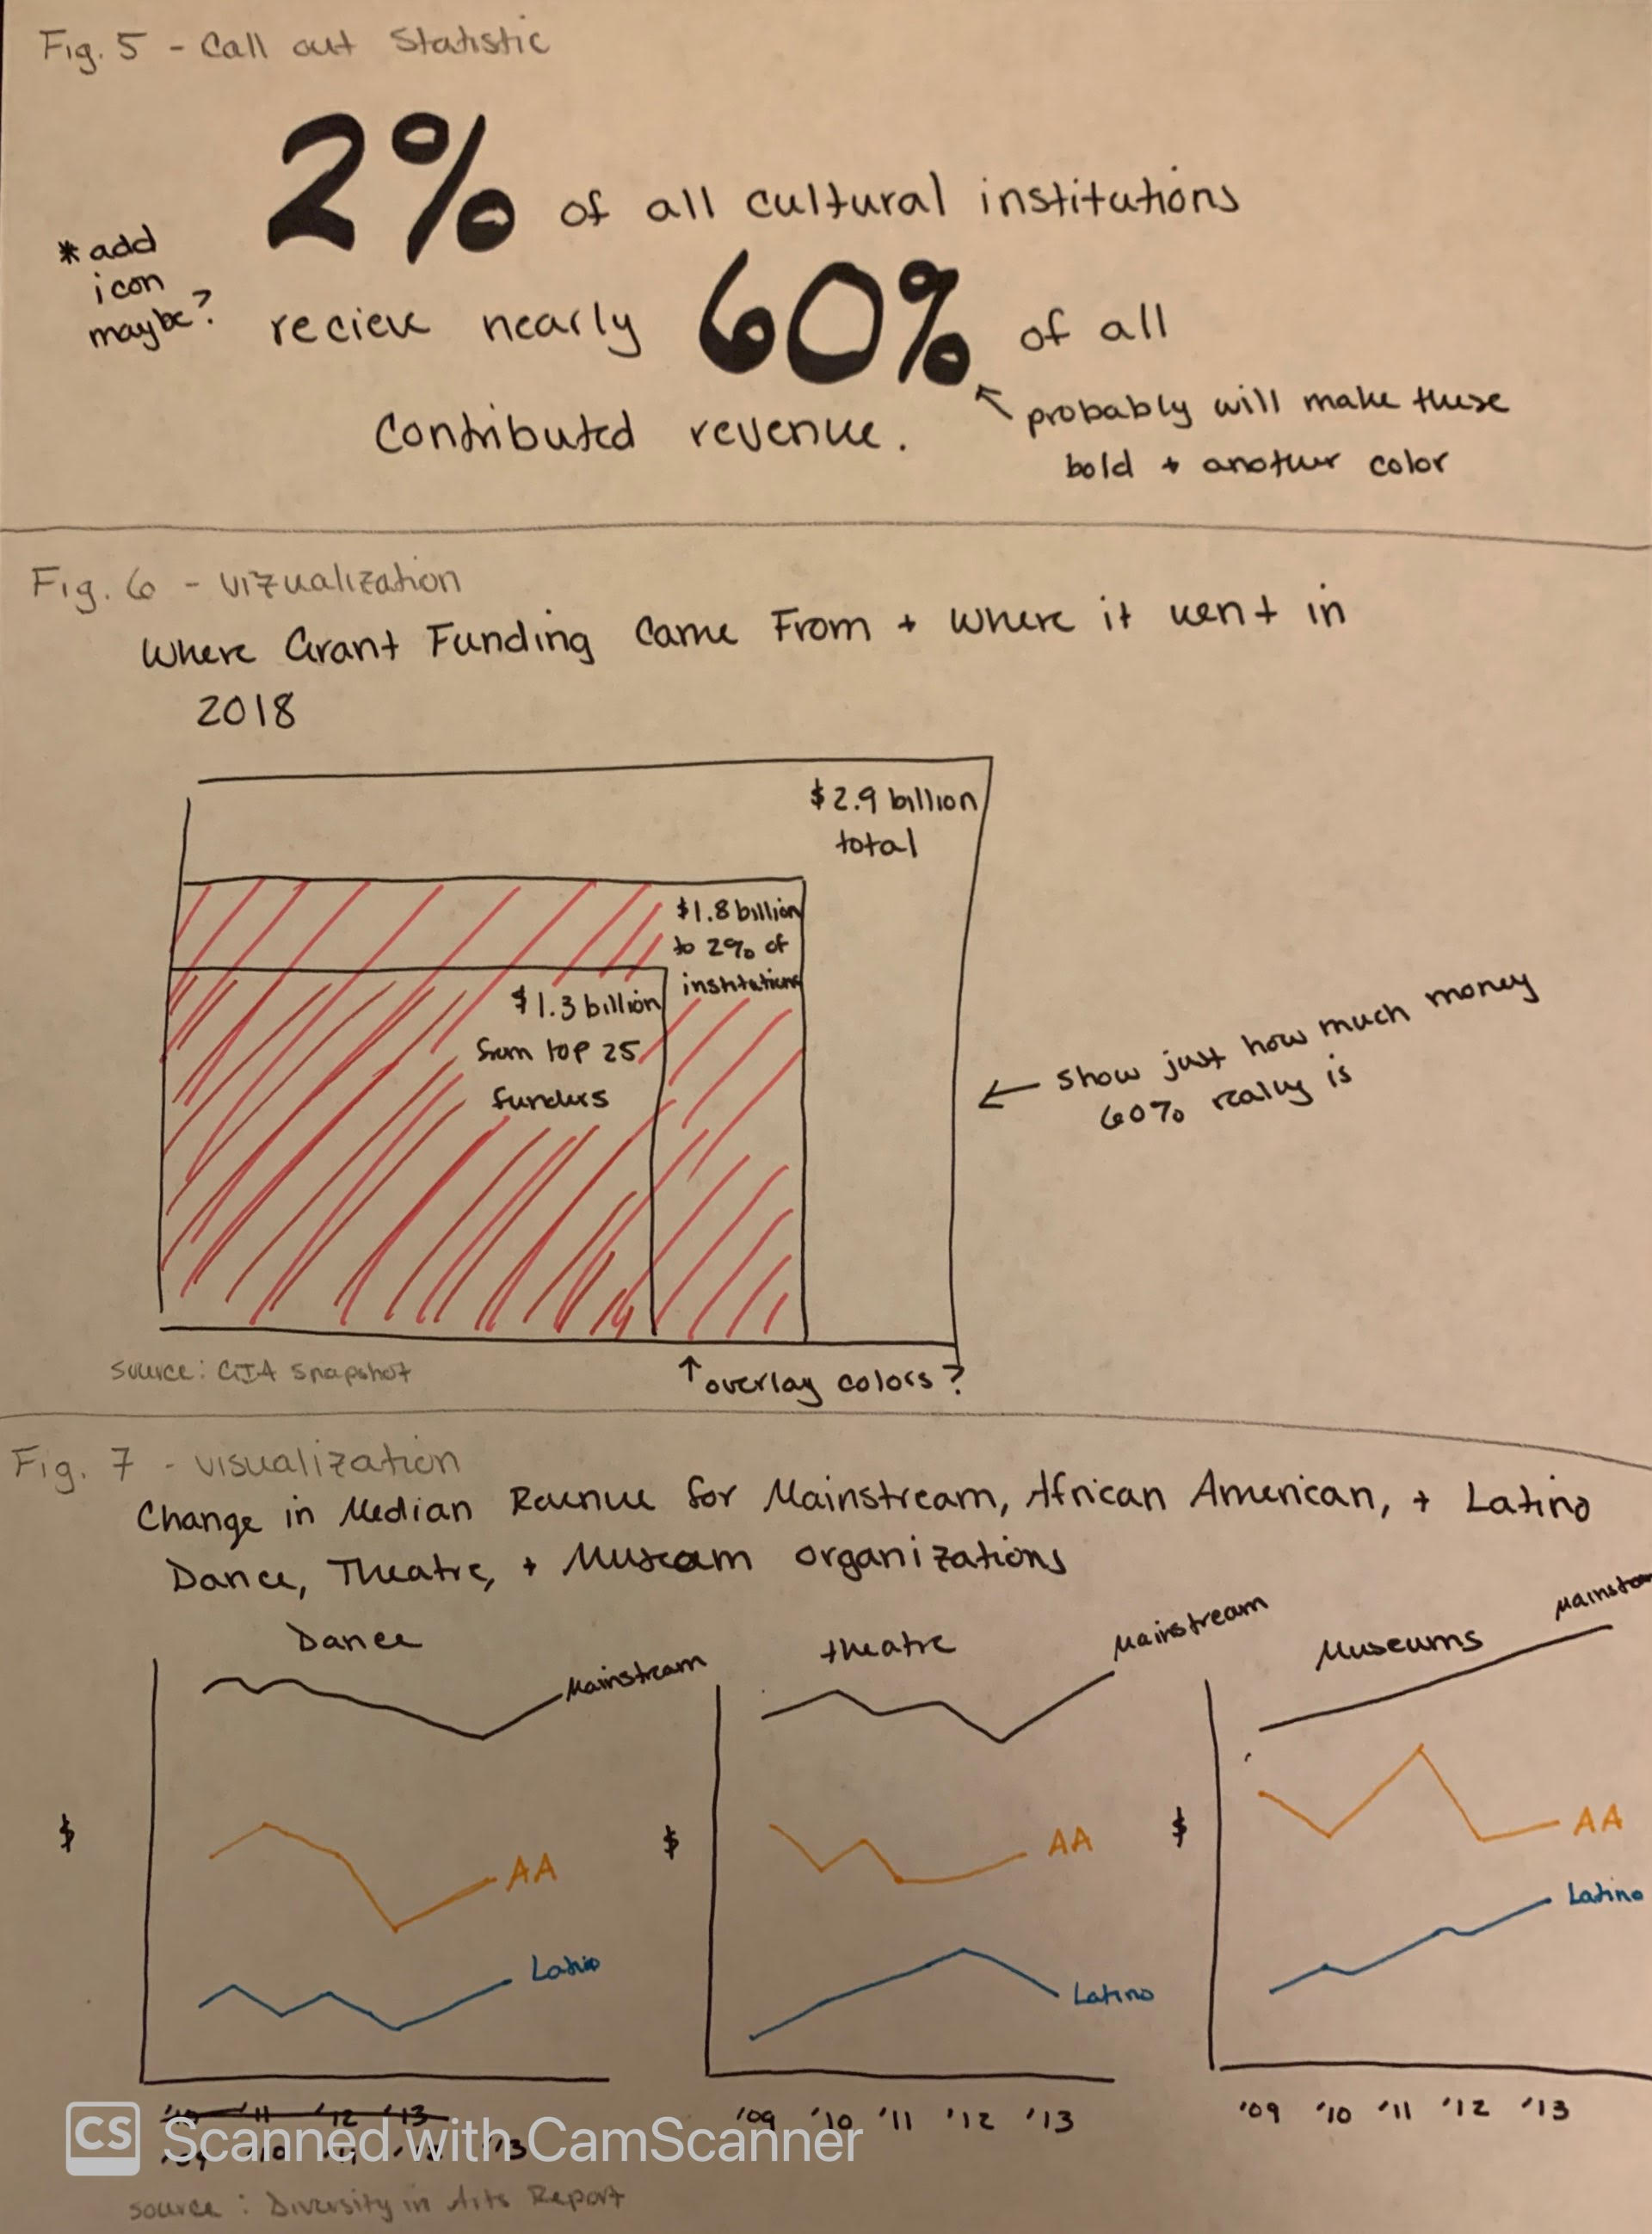 Fig. 5 - Call out Statistic
2% of all cultural institutions
*add
icon
maybe?
recieve nearly 60% of all
contributed revenue.
probably will make these
bold + another color
Fig. 6 - vizualization
Where Grant Funding Came From + Where it went in
2018
$2.9 billion
total
$1.8 billion
to 2% of
institutions
$1.3 billion
from top 25
funders
show just how much money
60% really is
source: GIA Snapshot
overlay colors?
Fig. 7 - visualization
Change in Median Revenue for Mainstream, African American, + Latino
Dance, Theatre, + Museum organizations
Dance
Mainstream
AA
Latino
$
theatre
Mainstream
AA
Latino
$
Museums
AA
Latino
$
'11 '12 '13
'09 '10 '11 '12 '13
'09 '10 '11 '12 '13
'09 '10 '11 '12 '13
CS Scanned with CamScanner
source: Diversity in Arts Report